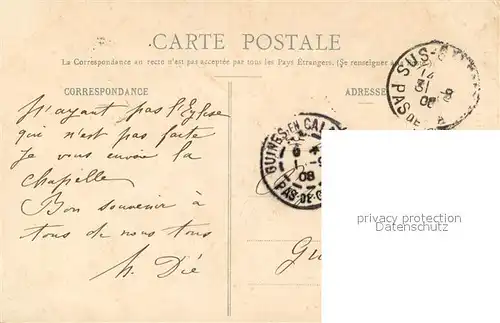 CARTE POSTALE
La Correspondance au recto n'est pas acceptée par tous les Pays Étrangers. (Se renseigner à la
CORRESPONDANCE
ADRESSE
N'ayant pas l'Eglise
qui n'est pas faite
je vous envoie la
chapelle
Bon souvenir à
tous de nous tous
h. Dié
SUS-
14
31 -8
08
PAS DE
GUINES-EN-CAL
1 -9
08
PAS-DE-C
Gu
privacy protection
Datenschutz